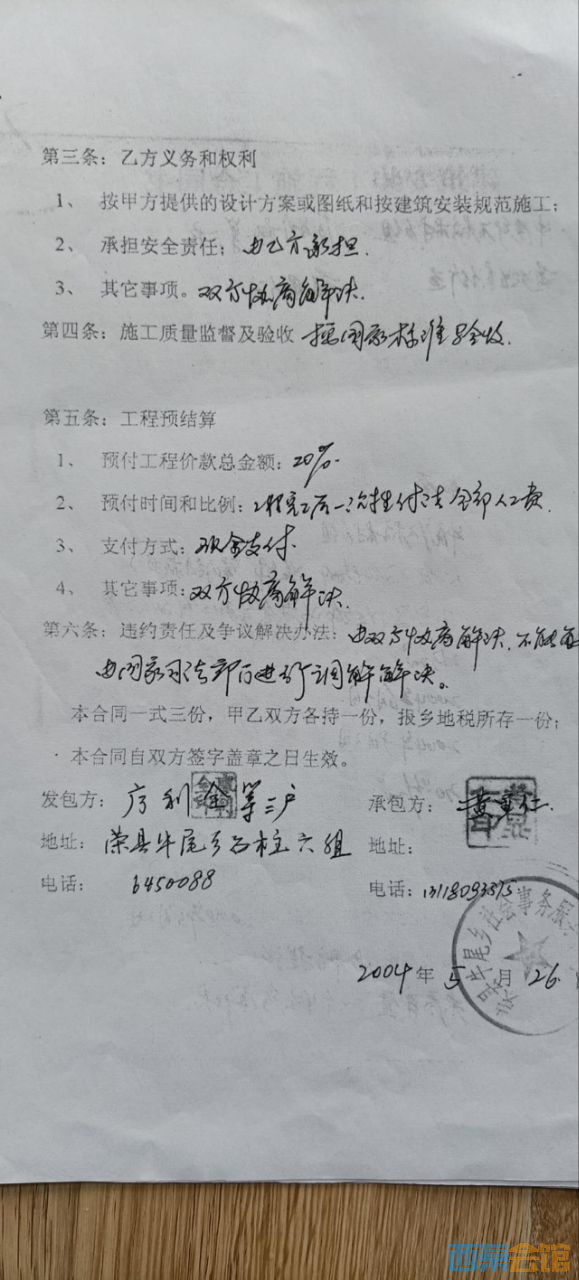 第三条：乙方义务和权利
1、 按甲方提供的设计方案或图纸和按建筑安装规范施工；
2、 承担安全责任：由乙方承担.
3、 其它事项。双方协商解决.
第四条：施工质量监督及验收 按国家标准验收.
第五条：工程预结算
1、 预付工程价款总金额：20%.
2、 预付时间和比例：工程完工后一次性付清全部人工费.
3、 支付方式：现金支付.
4、 其它事项：双方协商解决.
第六条：违约责任及争议解决办法：由双方协商解决.不能
由国家司法部门进行调解解决。
本合同一式三份，甲乙双方各持一份，报乡地税所存一份；
本合同自双方签字盖章之日生效。
发包方： 利金等三户
承包方：黄
地址：荣县牛尾乡石柱六组
地址：
电话： 6450088
电话：
牛尾乡社会事务服
2004年 5 月 26
西泉会馆